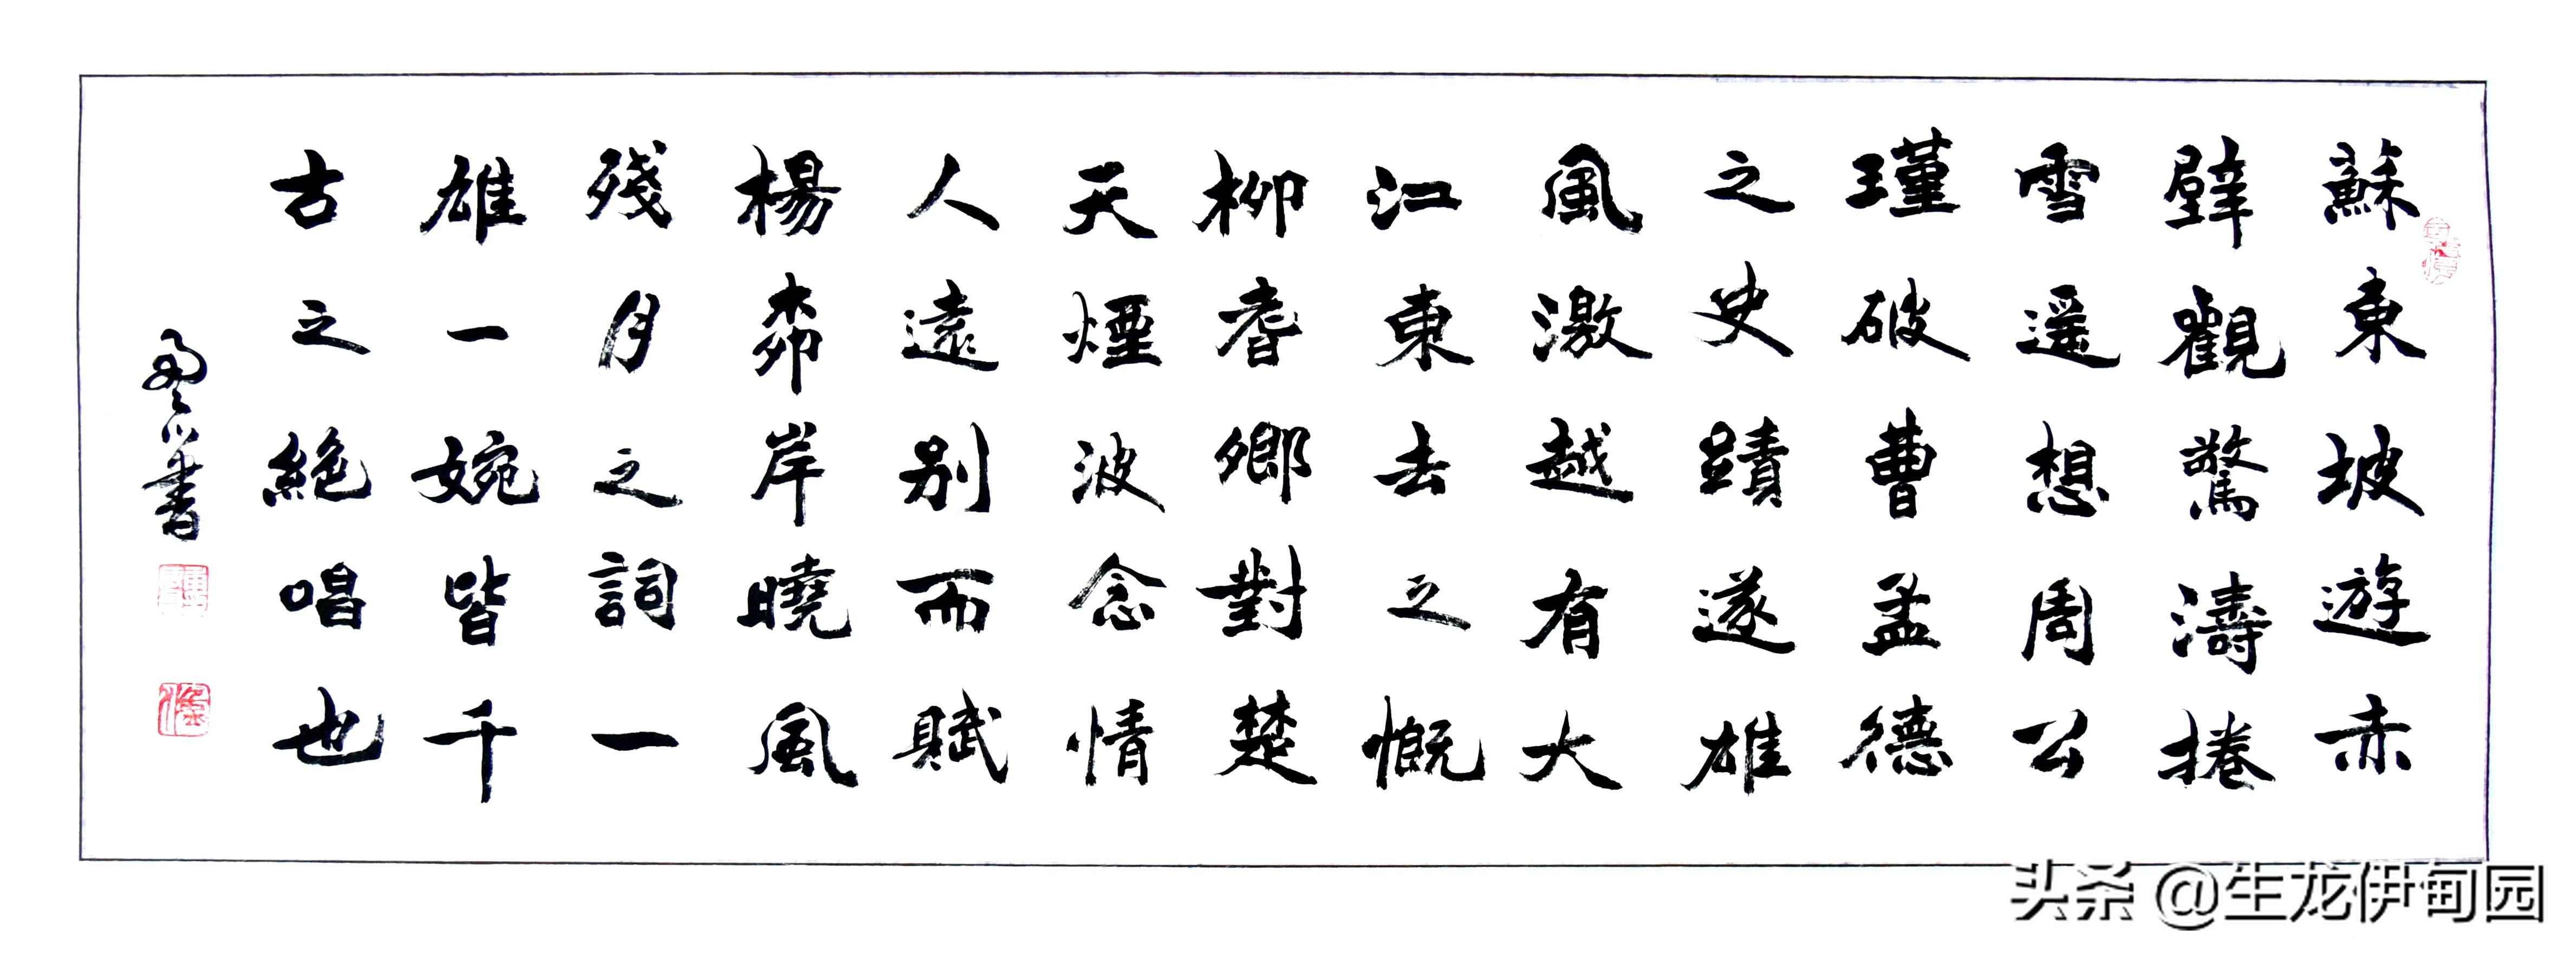 蘇東坡遊赤
壁觀驚濤捲
雪遥想周公
瑾破曹孟德
之史蹟遂雄
風激越有大
江東去之慨
柳耆卿對楚
天煙波念情
人遠别而賦
楊柳岸曉風
殘月之詞一
雄一婉皆千
古之絶唱也
書
头条 @生龙伊甸园